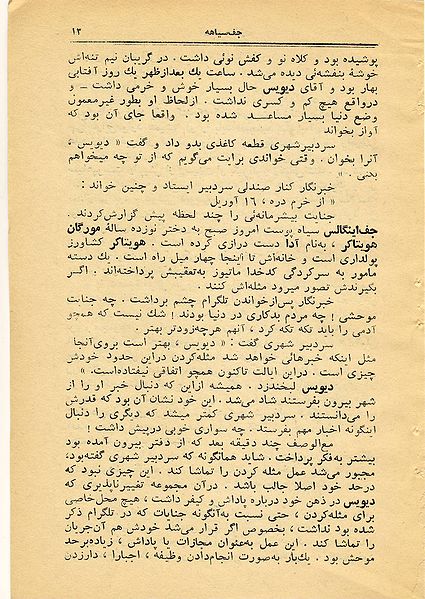 جف‌سیاهه
۱۳
پوشیده بود و کلاه نو و کفش نوئی داشت . در گریبان نیم تنه‌اش
خوشهٔ بنفشه‌ئی دیده می‌شد . ساعت یك بعدازظهر یك روز آفتابی
بهار بود و آقای دیویس حال بسیار خوش و خرمی داشت ـ و
درواقع هیچ کم و کسری نداشت . ازلحاظ او بطور غیرمعمون
وضع دنیا بسیار مساعد شده بود . واقعا جای آن بود که
آواز بخواند
سردبیرشهری قطعه کاغذی بدو داد و گفت « دیویس ،
آنرا بخوان . وقتی خواندی برایت می‌گویم که از تو چه میخواهم
یعنی . »
خبرنگار کنار صندلی سردبیر ایستاد و چنین خواند :
« از خرم دره ، ۱۶ آوریل
جنایت بیشرمانه‌ئی را چند لحظه پیش گزارش‌کردند .
جف‌اینگالس سیاه پوست امروز صبح به دختر نوزده سالهٔ مورگان
هویتاکر ، به‌نام آدا دست درازی کرده است . هویتاکر کشاورز
پولداری است و خانه‌اش تا اینجا چهار میل راه است . یك دسته
مامور به سرکردگی کدخدا ماتیوز به‌تعقیبش پرداخته‌اند . اگر
بگیرندش تصور میرود مثله‌اش کنند .
خبرنگار پس‌ازخواندن تلگرام چشم برداشت . چه جنایت
موحشی ! چه مردم بدکاری در دنیا بودند ! شك نیست که همچو
آدمی را باید تکه تکه کرد ، آنهم هرچه‌زودتر بهتر .
سردبیر شهری گفت : « دیویس ، بهتر است بروی‌آنجا
مثل اینکه خبرهائی خواهد شد مثله‌کردن دراین حدود خودش
چیزی است . دراین ایالت تاکنون همچو اتفاقی نیفتاده‌است. »
دیویس لبخندزد . همیشه ازاین که دنبال خبر او را از
شهر بیرون بفرستند شاد می‌شد . این خود نشان آن بود که قدرش
را می‌دانستند . سردبیر شهری کمتر میشد که دیگری را دنبال
اینگونه اخبار مهم بفرستد . چه سواری خوبی درپیش داشت !
مع‌الوصف چند دقیقه بعد که از دفتر بیرون آمده بود
بیشتر به‌فکر پرداخت . شاید همانگونه که سردبیر شهری گفته‌بود،
مجبور می‌شد عمل مثله کردن را تماشا کند . این چیزی نبود که
درحد خود اصلا جالب باشد . درآن مجموعه تغییرناپذیری که
دیویس در ذهن خود درباره پاداش و کیفر داشت ، هیچ محل‌خاصی
برای مثله‌کردن ، حتی نسبت به‌آنگونه جنایات که در تلگرام ذکر
شده بود نداشت ، بخصوص اگر قرار می‌شد خودش هم آن‌جریان
را تماشا کند . این عمل به‌عنوان مجازات یا پاداش ، زیاده‌برحد
موحش بود . یك‌بار به‌صورت انجام‌دادن وظیفه ، اجبارا ، دارزدن